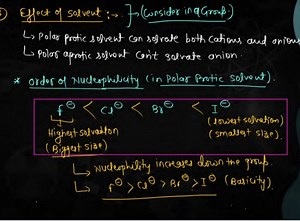 Effect of solvent :- (Consider in a Group)
↳ Polar protic solvent can solvate both cations and anions
↳ Polar aprotic solvent can't solvate anion.
* order of Nucleophilicity (in Polar Protic solvent).
F⊖ < Cl⊖ < Br⊖ < I⊖
Highest solvation (lowest solvation)
(Biggest size) (smallest size).
↳ Nucleophilicity increases down the group.
↳ F⊖ > Cl⊖ > Br⊖ > I⊖ (Basicity).